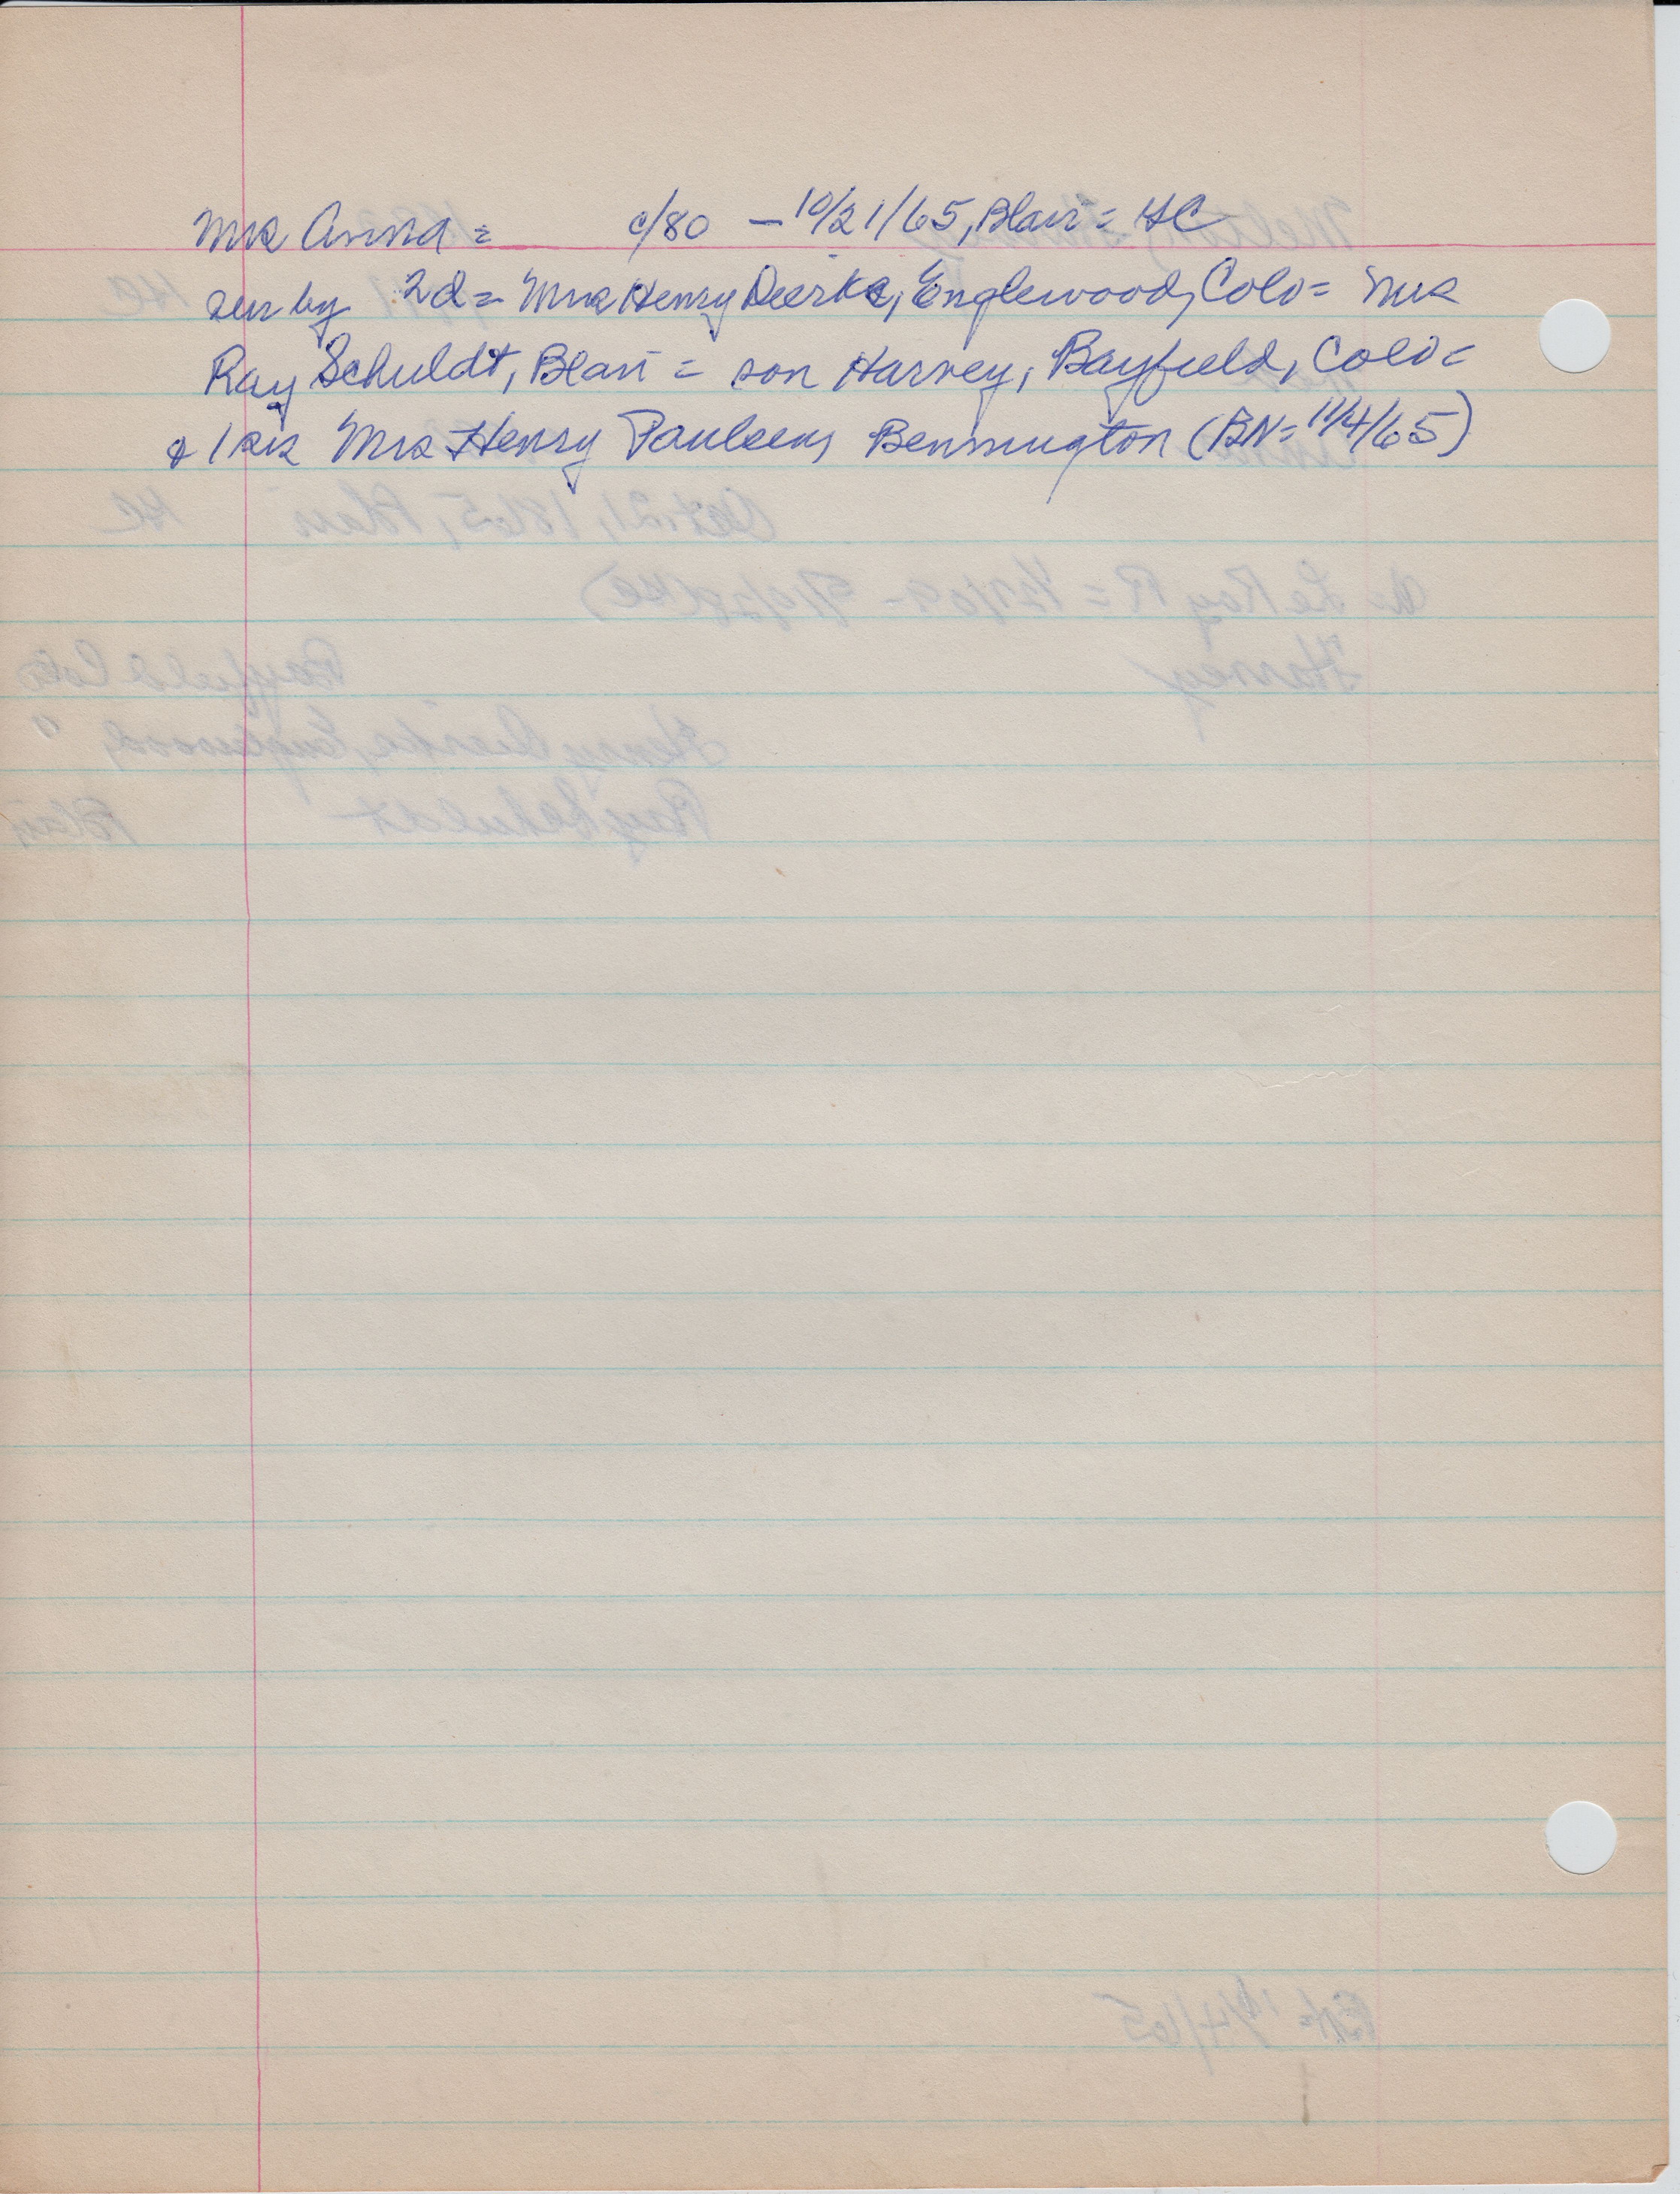 Mrs Anna = c/80 – 10/21/65, Blair = HC
sur by 2d = Mrs Henry Dierks, Englewood, Colo = Mrs
Ray Schuldt, Blair = son Harvey, Bayfield, Colo =
& 1 sis Mrs Henry Paulsen, Bennington (BN = 11/4/65)